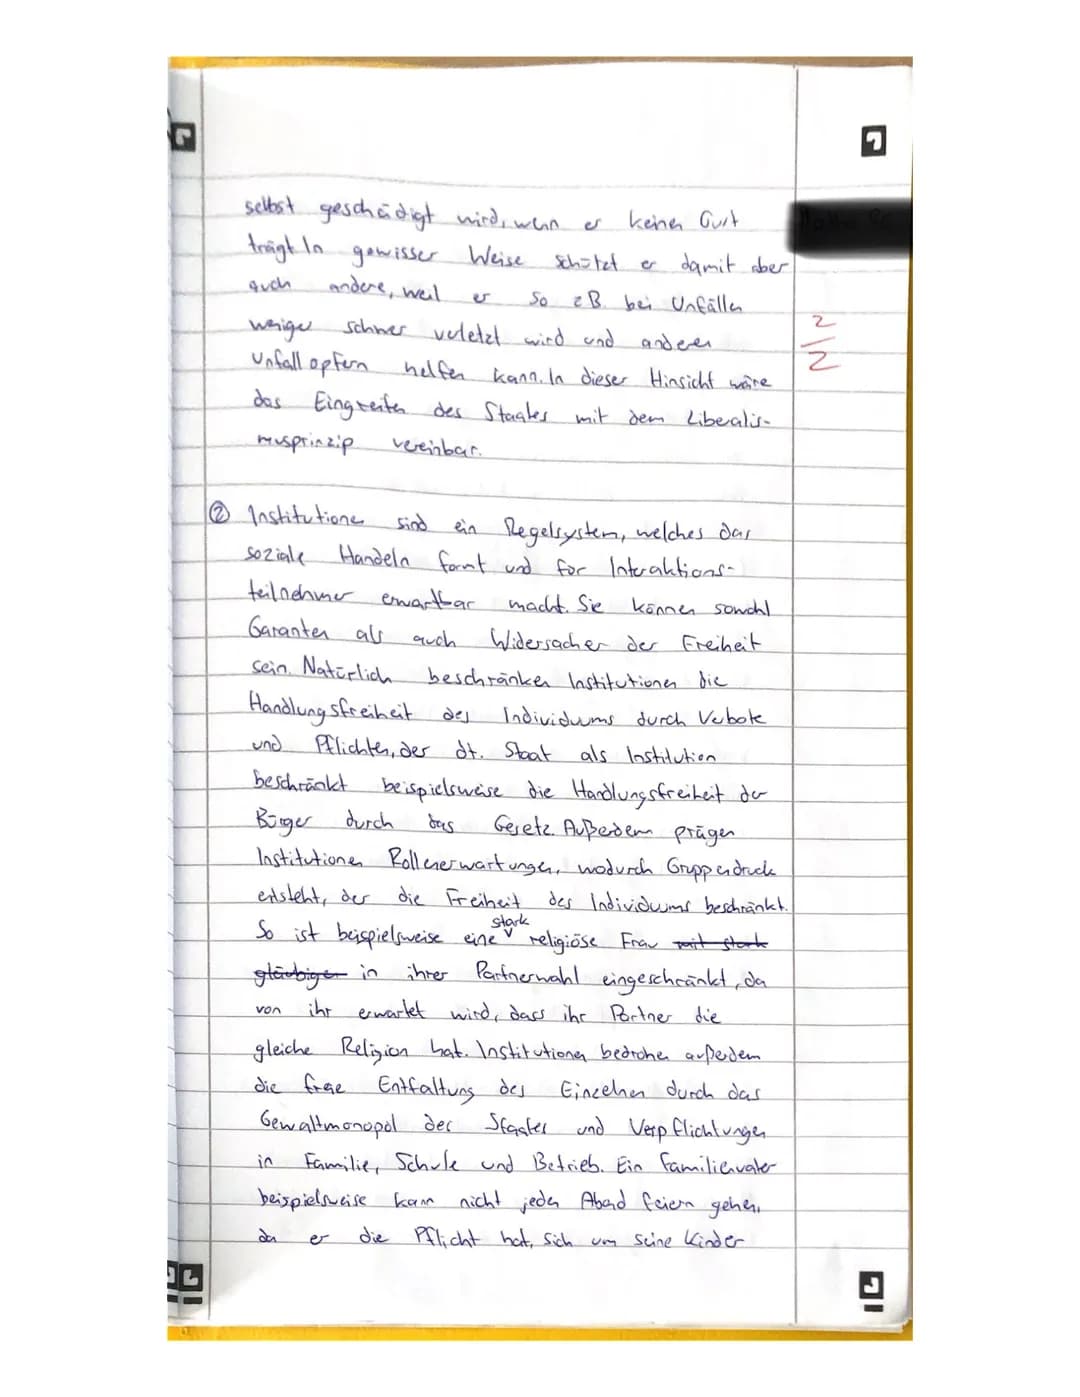 selbst geschädigt wird, wenn er keinen Gurt
trägt. In gewisser Weise schützt er damit aber
auch andere, weil er so z.B. bei Unfällen
weniger schwer verletzt wird und anderen
Unfallopfern helfen kann. In dieser Hinsicht wäre
das Eingreifen des Staates mit dem Liberalis-
musprinzip vereinbar.
2
2
② Institutionen sind ein Regelsystem, welches das
soziale Handeln formt und für Interaktions-
teilnehmer erwartbar macht. Sie können sowohl
Garanten als auch Widersacher der Freiheit
sein. Natürlich beschränken Institutionen die
Handlungsfreiheit des Individuums durch Verbote
und Pflichten, der dt. Staat als Institution
beschränkt beispielsweise die Handlungsfreiheit der
Bürger durch das Gesetz. Außerdem prägen
Institutionen Rollenerwartungen, wodurch Gruppendruck
entsteht, der die Freiheit des Individuums beschränkt.
So ist beispielsweise eine stark religiöse Frau mit stark
gläubiger in ihrer Partnerwahl eingeschränkt, da
von ihr erwartet wird, dass ihr Partner die
gleiche Religion hat. Institutionen bedrohen außerdem
die freie Entfaltung des Einzelnen durch das
Gewaltmonopol des Staates und Verpflichtungen
in Familie, Schule und Betrieb. Ein Familienvater
beispielsweise kann nicht jeden Abend feiern gehen,
da er die Pflicht hat, sich um seine Kinder